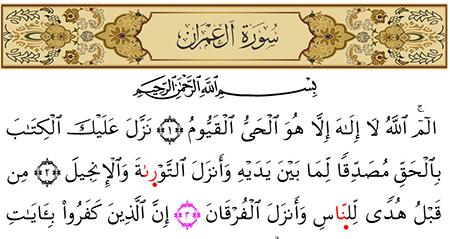 سُورَةُ آلِ عِمْرَانَ
بِسْمِ ٱللَّهِ ٱلرَّحْمَٰنِ ٱلرَّحِيمِ
الٓمٓ ٱللَّهُ لَآ إِلَٰهَ إِلَّا هُوَ ٱلْحَىُّ ٱلْقَيُّومُ ﴿١﴾ نَزَّلَ عَلَيْكَ ٱلْكِتَٰبَ
بِٱلْحَقِّ مُصَدِّقًا لِّمَا بَيْنَ يَدَيْهِ وَأَنزَلَ ٱلتَّوْرَىٰةَ وَٱلْإِنجِيلَ ﴿٢﴾ مِن
قَبْلُ هُدًى لِّلنَّاسِ وَأَنزَلَ ٱلْفُرْقَانَ ﴿٣﴾ إِنَّ ٱلَّذِينَ كَفَرُوا۟ بِـَٔايَٰتِ